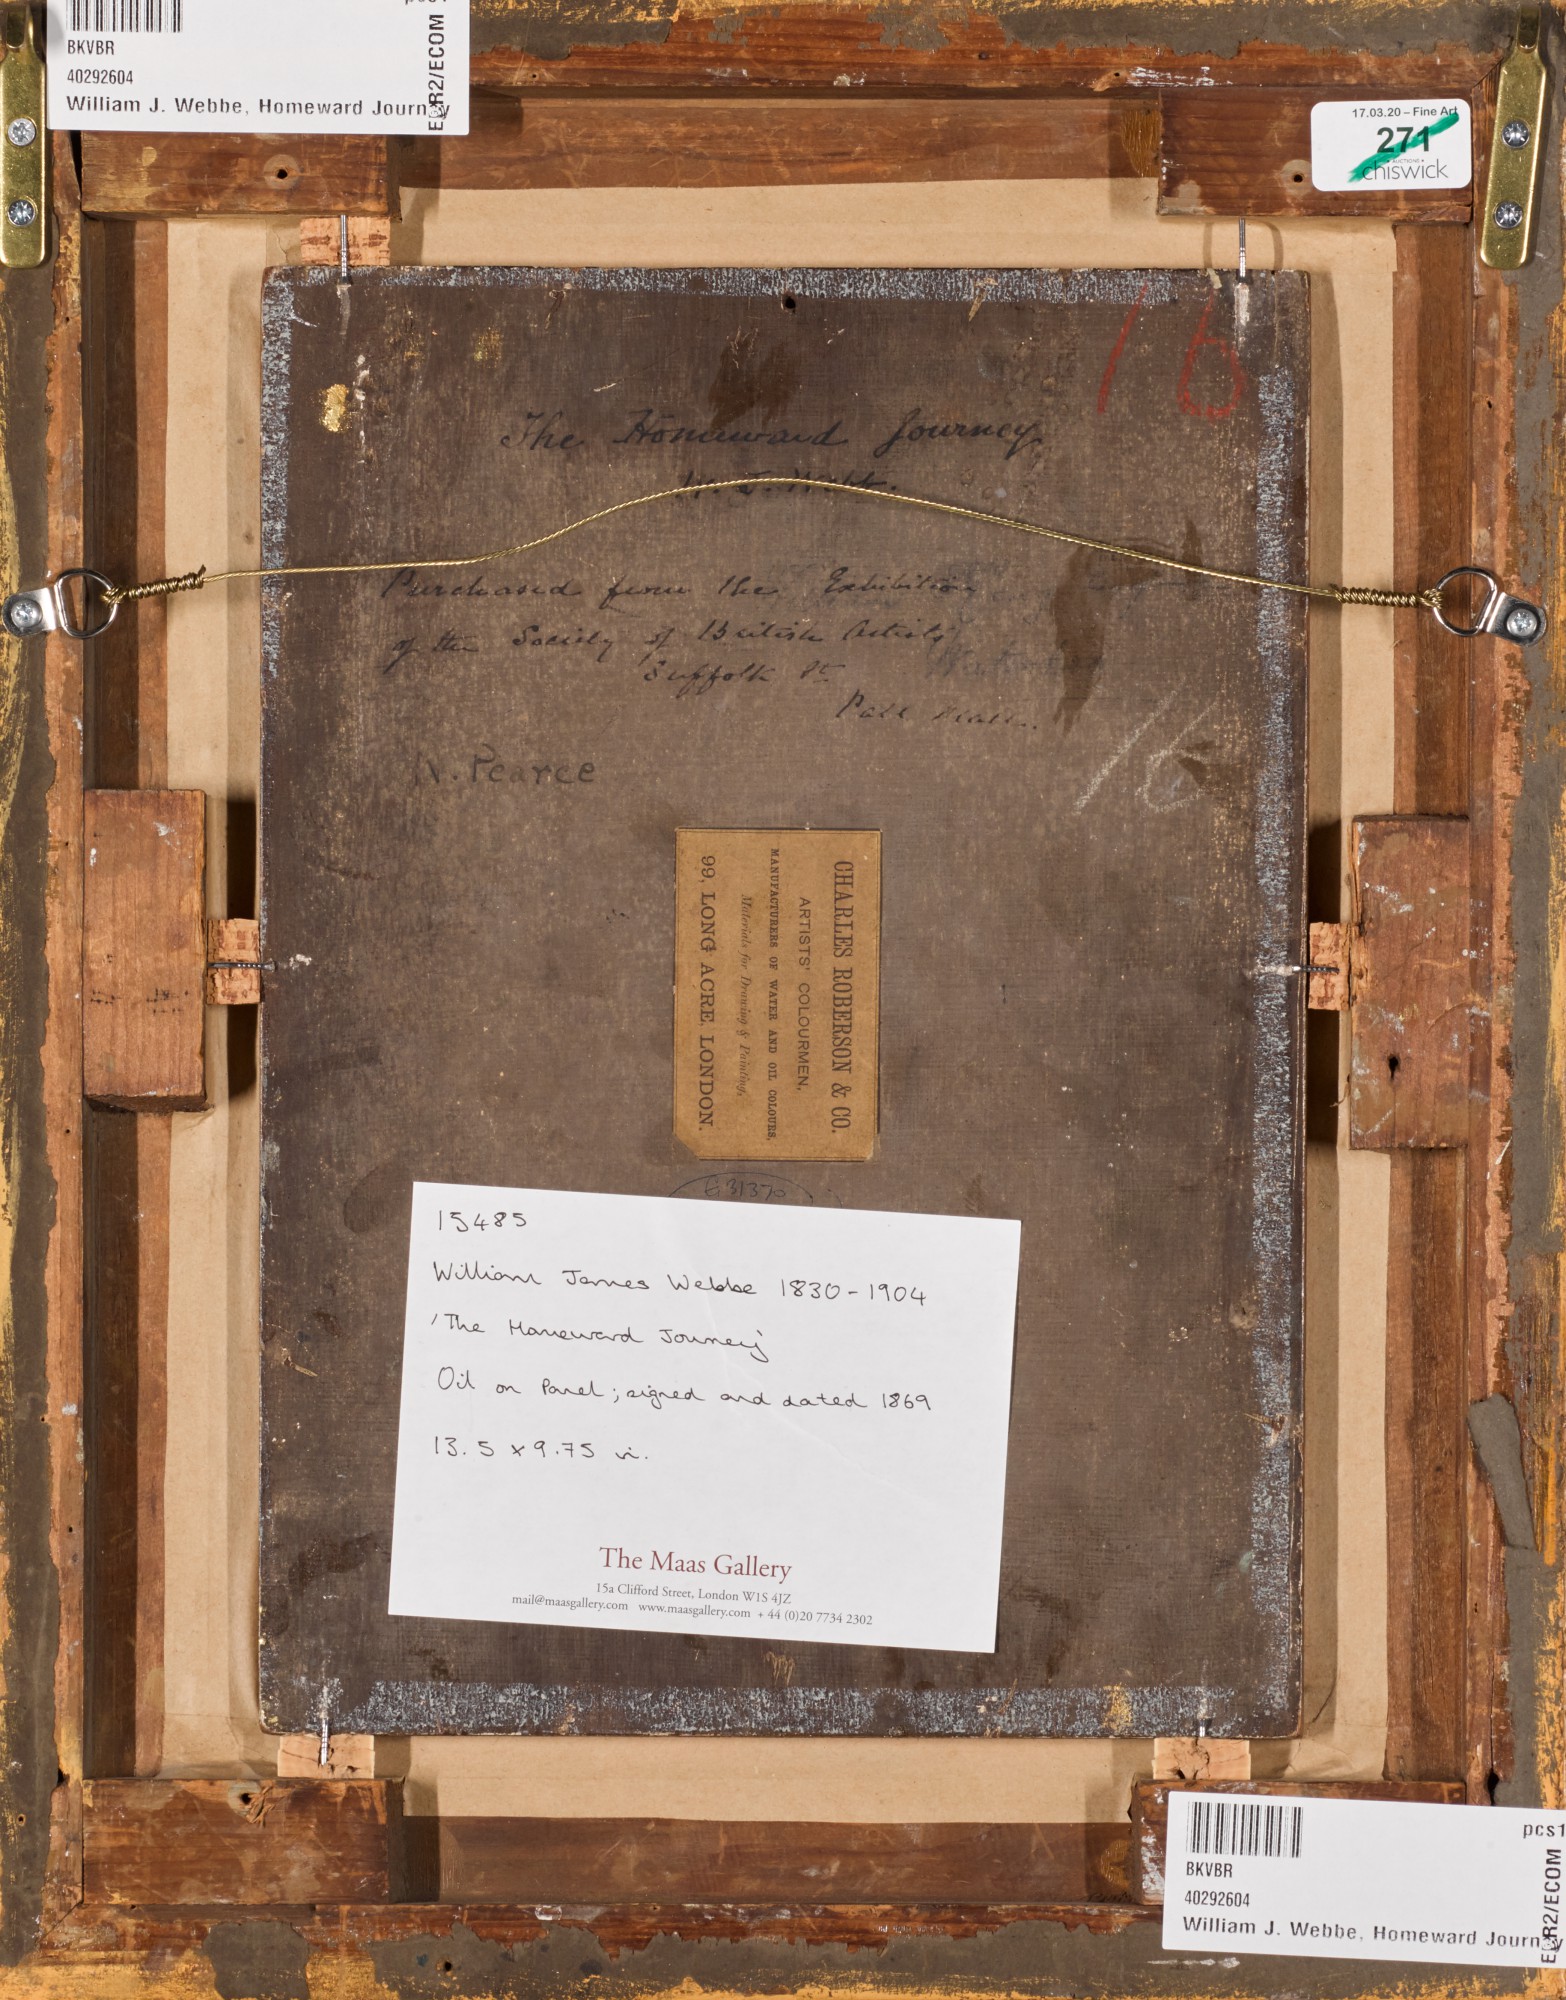 BKVBR
40292604
William J. Webbe, Homeward Journey
ER2/ECOM
17.03.20 – Fine Art
271
AUCTIONS
chiswick
16
The Homeward Journey
W. J. Webb.
Purchased from the Exhibition
of the Society of British Artists
Suffolk St
Pall Mall.
16
N. Pearce
CHARLES ROBERSON & CO.
ARTISTS' COLOURMEN,
MANUFACTURERS OF WATER AND OIL COLOURS,
Materials for Drawing & Painting,
99, LONG ACRE, LONDON.
G31370
15485
William James Webbe 1830-1904
'The Homeward Journey'
Oil on Panel; signed and dated 1869
13.5 x 9.75 in.
The Maas Gallery
15a Clifford Street, London W1S 4JZ
mail@maasgallery.com www.maasgallery.com + 44 (0)20 7734 2302
pcs1
BKVBR
40292604
William J. Webbe, Homeward Journey
R2/ECOM